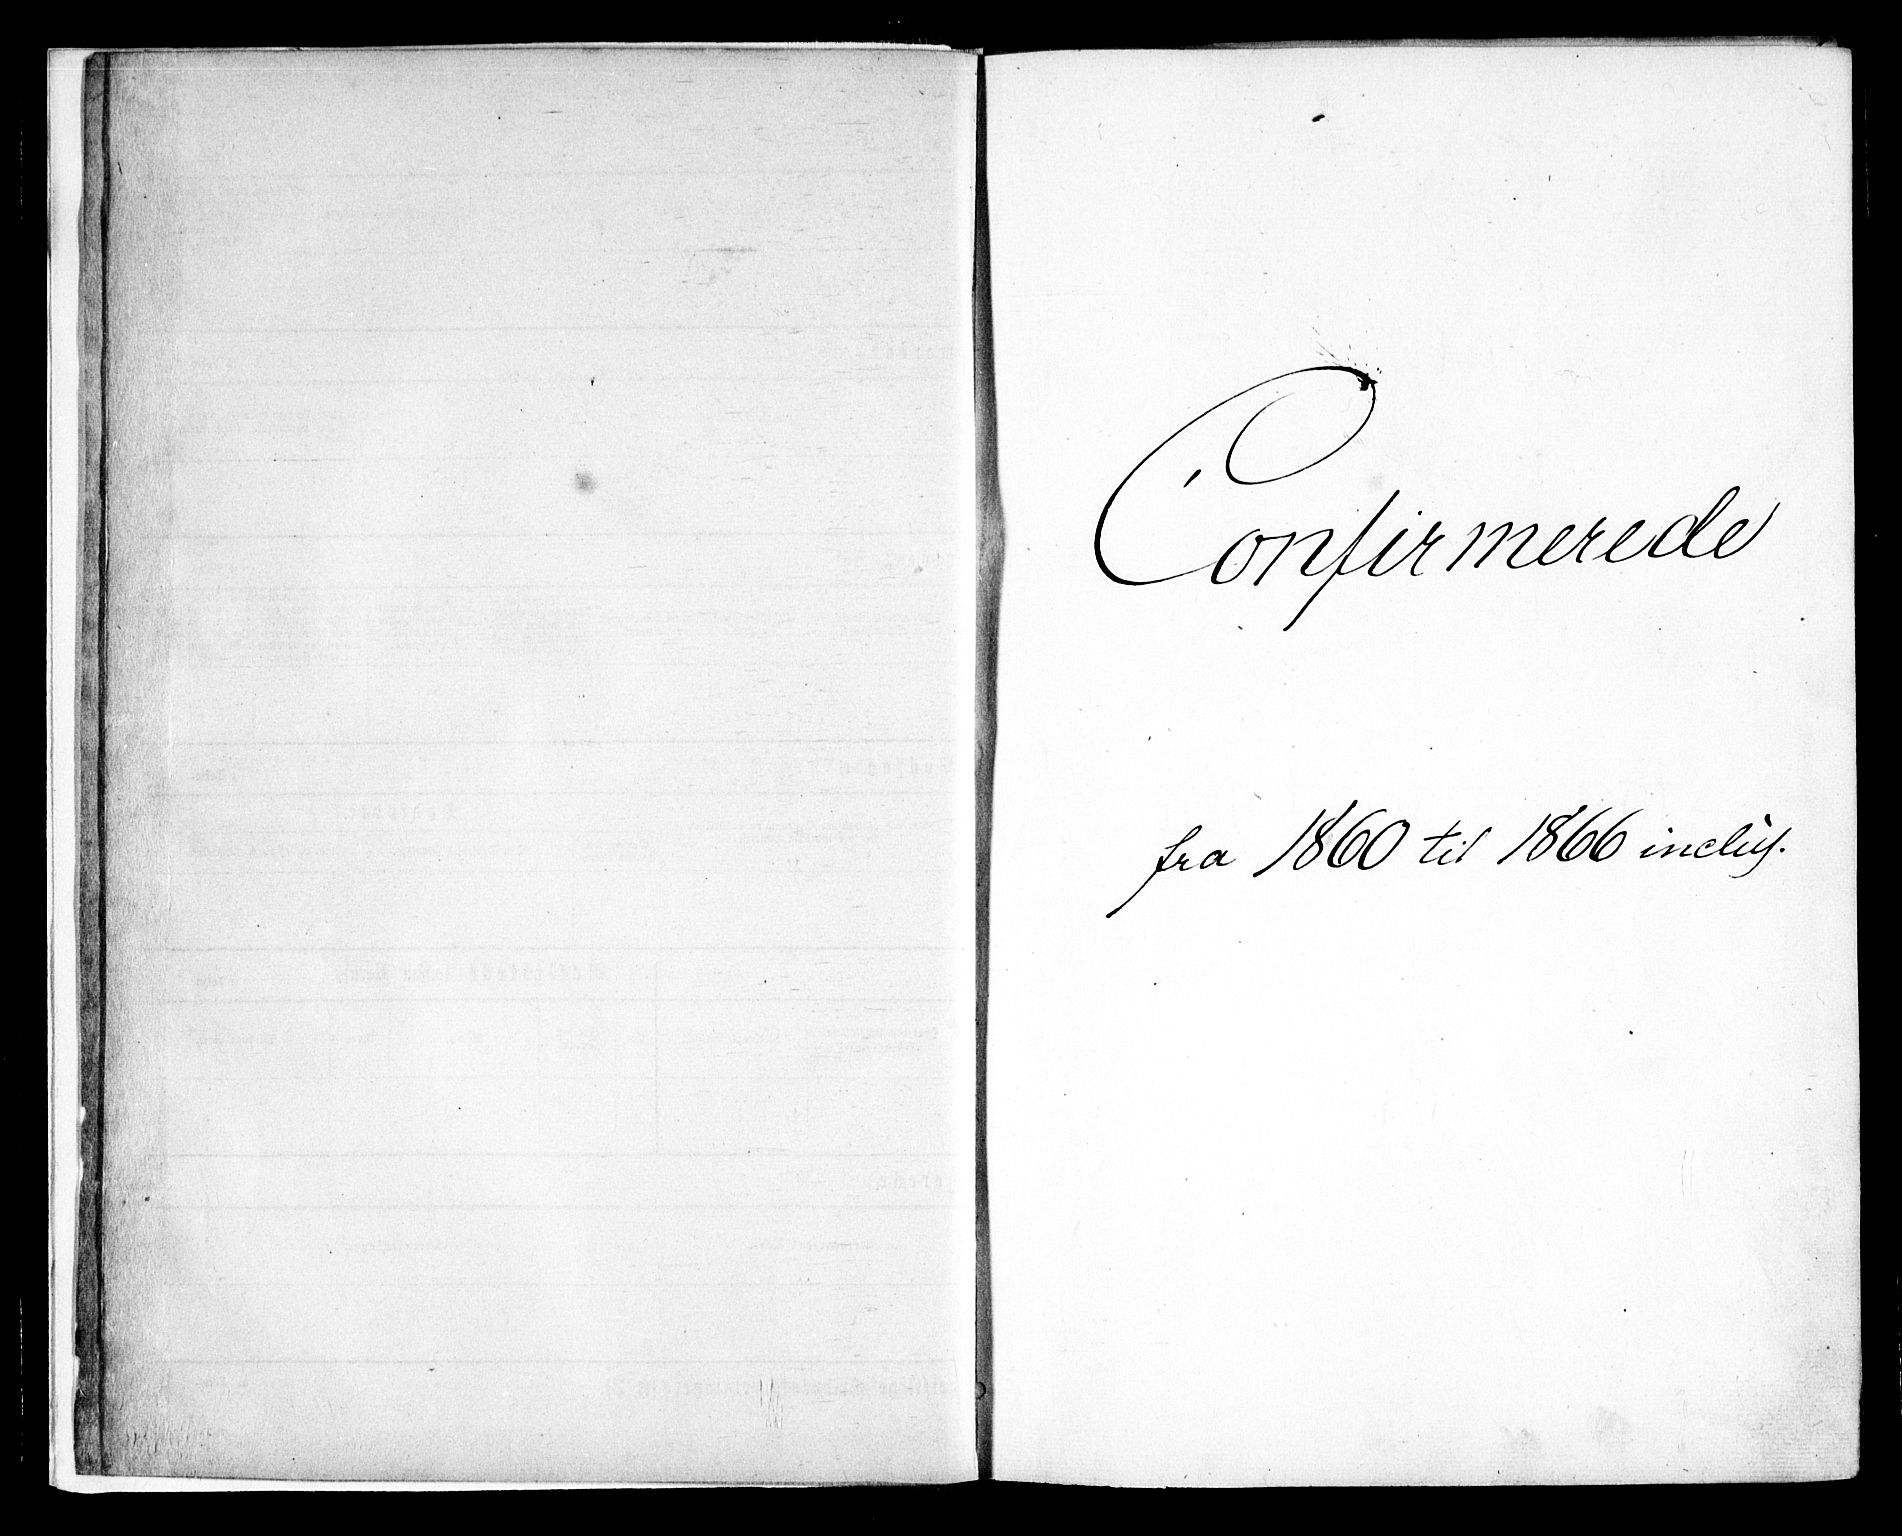 Confirmerede
fra 1860 til 1866 inclus.